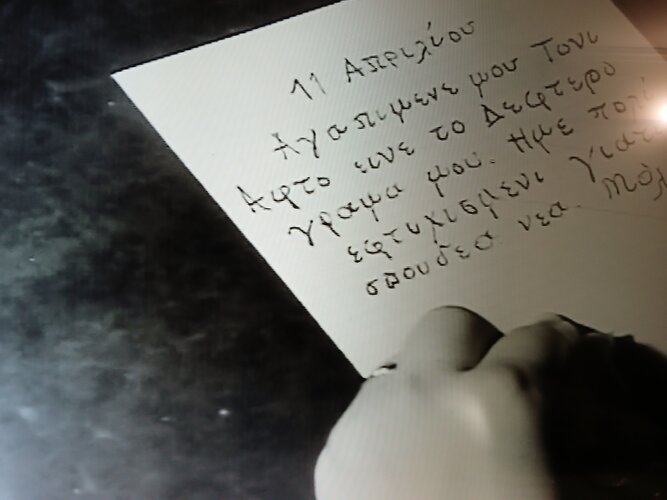 11 Απριλίου
Αγαπιμενε μου Τονι
Αφτο εινε το Δεφτερο
γραμα μου. Ημε πολί
εφτιχισμενι γιατ
σπουδεα νεα. Μόλ